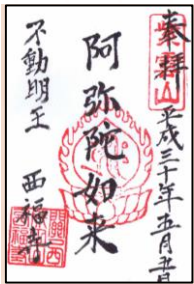 奉拝 平成三十年五月五日
紫雲山
阿弥陀如来
不動明王 西福寺